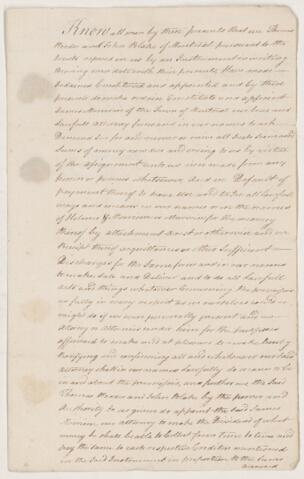 Know all men by these presents that we Thomas
and John Blake of Montreal pursuant to the
trusts reposed in us by an Instrument in writing
bearing date with these presents, Have made
ordained Constituted and appointed and by these
presents do make ordain Constitute and appoint
James of the Town of Montreal our true and
lawfull attorney for us and in our names to ask
Demand sue for and recover all and
Sums of money now due and owing to us by virtue
of the assignment unto us made from any
person or persons whatsoever And in Default of
payment thereof to have, Use and take all lawfull
ways and means in our names or in the names
of for the recovery
thereof by attachment Arrest or otherwise and on
receipt thereof acquittances or other Sufficient
Discharges for the Same for us and in our names
to make Seal and Deliver and to do all lawfull
acts and things whatsoever Concerning the premises
as fully in every respect as we ourselves could or
might do if we were personally present and an
attorney or attornies under him for the purposes
aforesaid to make and at pleasure to revoke hereby
Ratifying and confirming all and whatsoever our said
attorney shall in our names lawfully do or cause to be
in and about the premises, and further we the Said
Thomas and John Blake by the power and
Authority to us given do appoint the said James
our attorney to make the Dividend of what
money he shall be able to Collect from Time to time and
pay the same to each respective Creditor mentioned
in the Said Instrument in proportion to the Sums